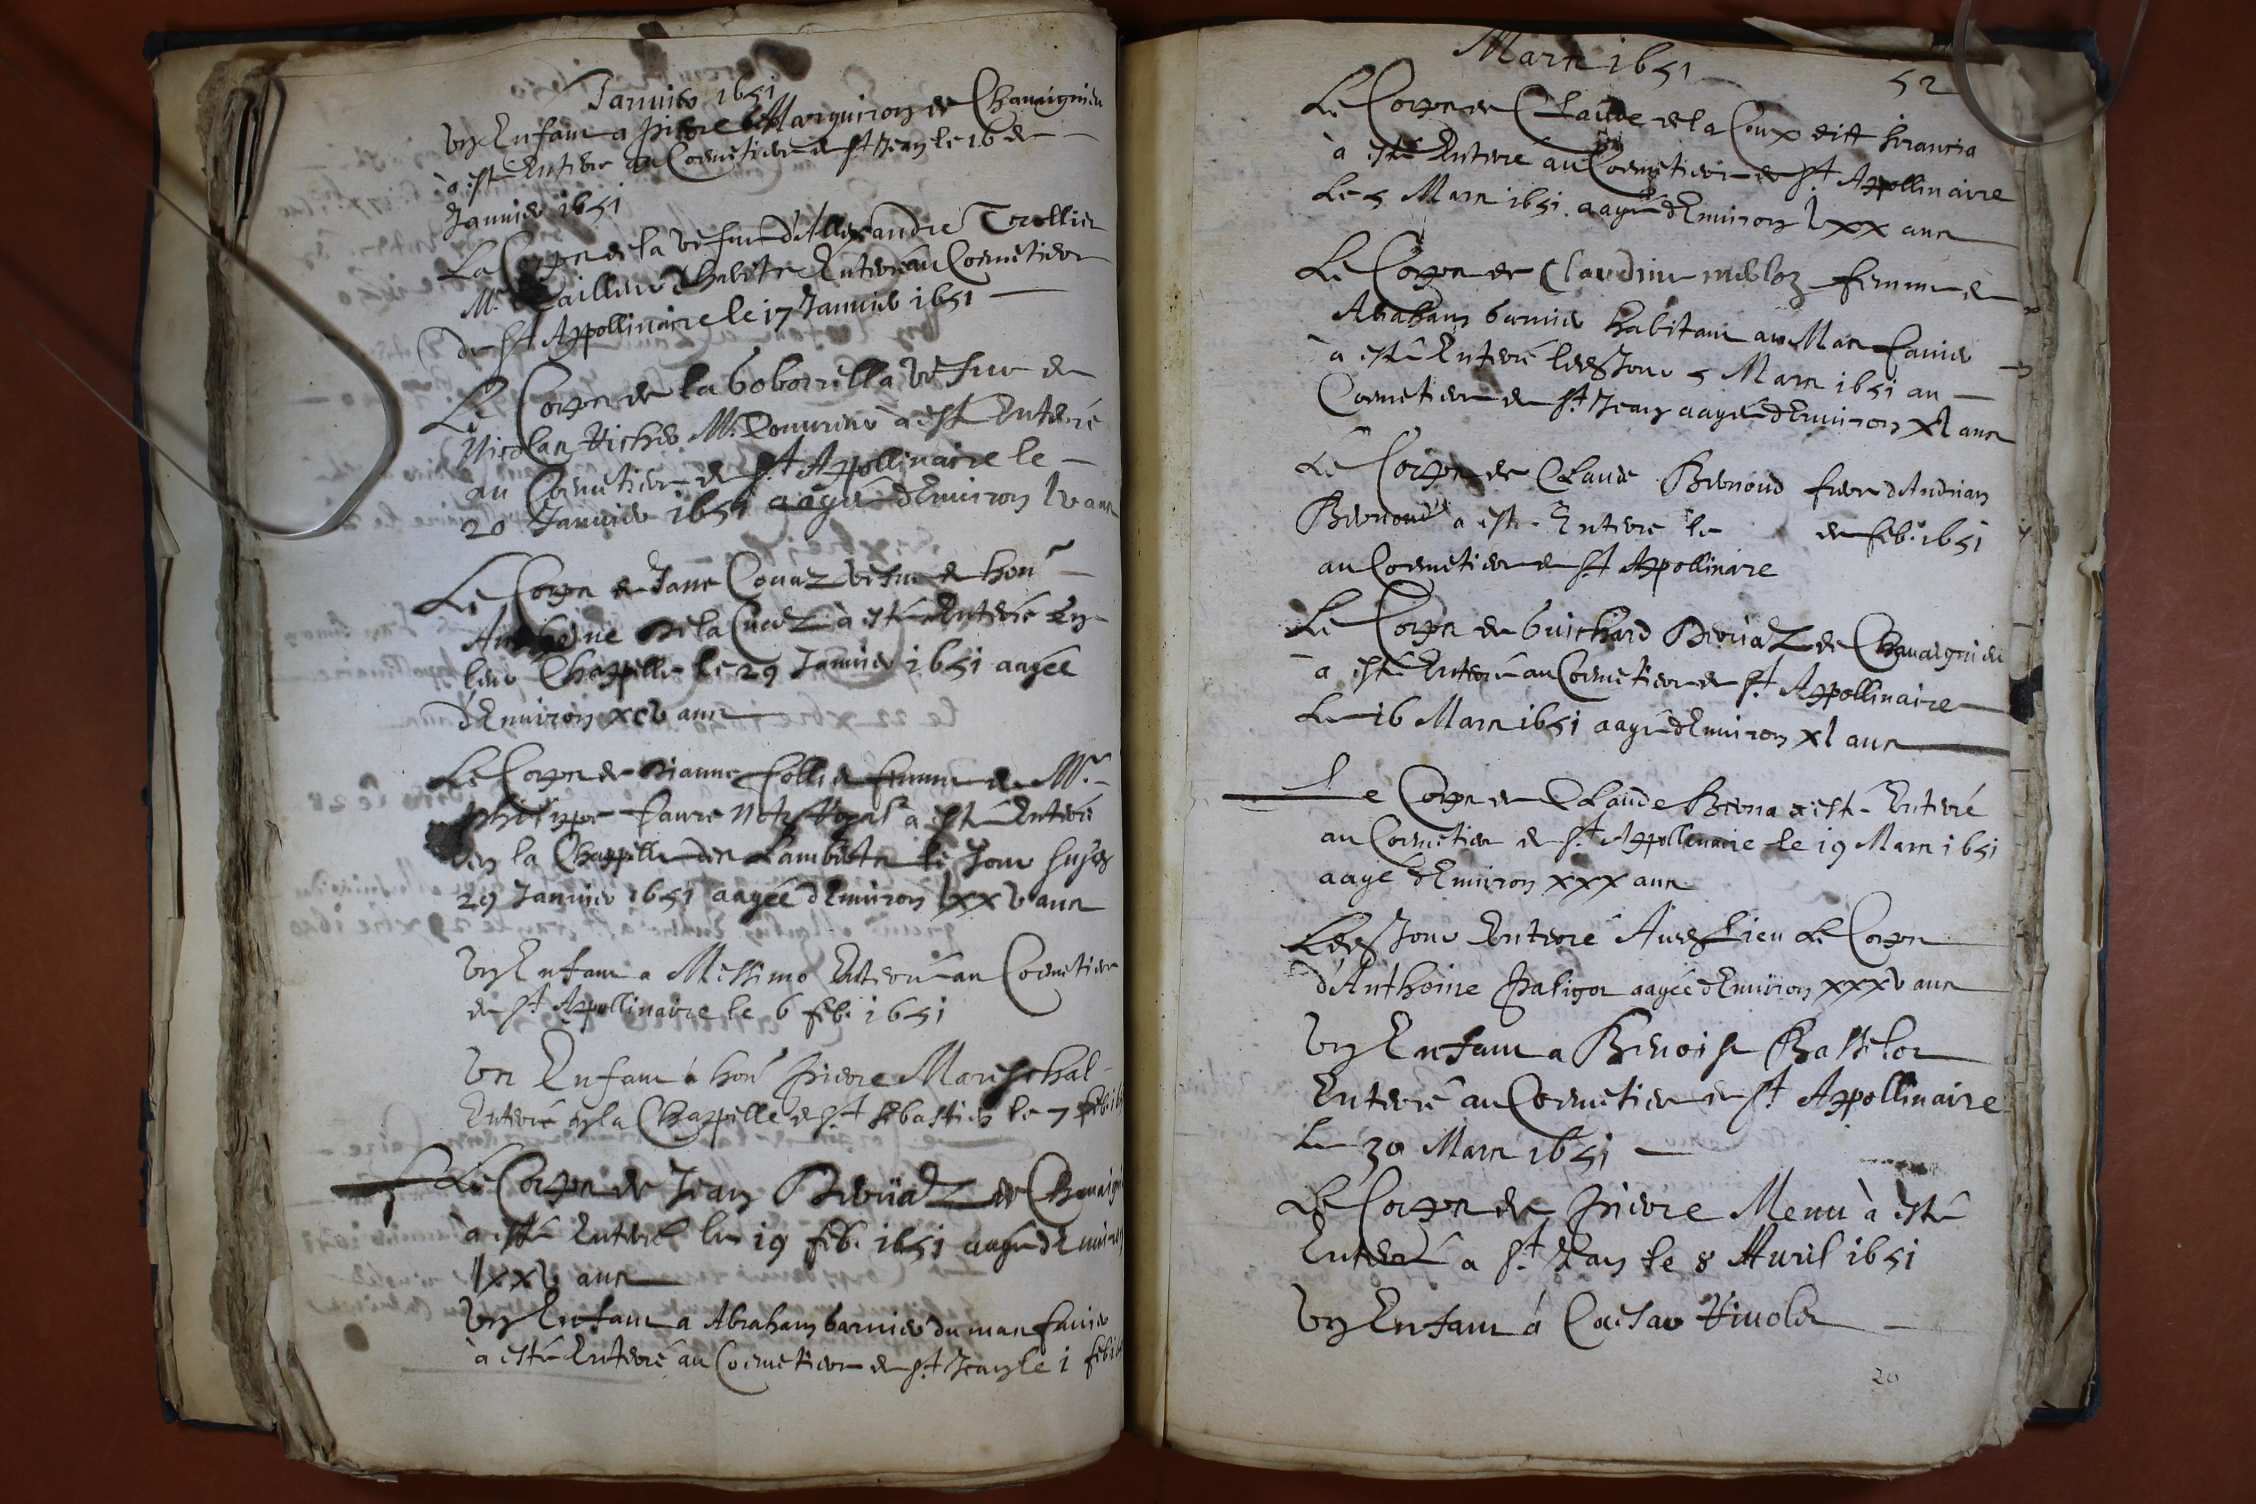 Januier 1651
Vn Enfant a pierre Marguiron de Chauaignieu
à esté Enterre au Coemetiere de St Jean le 16 de
Januier 1651
Le Corps de la vefue d'Allexandre Trollier
Mr Tailleur d'habitz Enterré au Coemetiere
de St Appollinaire le 17 Januier 1651
Le Corps de la boborrella vefue de
Nicolas Richer Mr à esté Enterré
au Coemetiere de St Appollinaire le
20 Januier 1651 aagée d'Enuiron lv ans
Le Corps de Jane Couaz vefue de hon
Anthoine Delacuaz à esté Enterré En
leur Chappelle le 29 Januier 1651 aagée
d'Enuiron xcv ans
Le Corps de Dianne Collie femme de Mr
philippe faure Notre Royal à esté Enterré
en la Chappelle des Lambertz le Jour
29 Januier 1651 aagée d'Enuiron lxxv ans
Vn Enfant a Messimo Enterré au Coemetiere
de St Appollinaire le 6 feb. 1651
Vn Enfant à hon pierre Mareschal
Enterré en la Chappelle de St sebastien le 7 feb.
Le Corps de Jean Brouaz de
à esté Enterré le 19 feb. 1651 aagé d'Enuiron
lxxv ans
Vn Enfant a Abraham barnier du mas fanier
à esté Enterré au Coemetiere de St Jean le 1 feb
Mars 1651
52
Le Corps de Claude de la Coux ditt francia
à esté Enterré au Coemetiere de St Appollinaire
Le 5 Mars 1651. aagé d'Enuiron lxx ans
Le Corps de Claudine femme de
Abraham barnier habitant au Mas fanier
à esté Enterré le Jour 5 Mars 1651 au
Coemetiere de St Jean aagée d'Enuiron xl ans
Le Corps de Claude Bernoud frere d'Andrian
Bernoud a esté Enterré le de feb. 1651
au Coemetiere de St Appollinare
Le Corps de Guichard Brouaz de Chauaignieu
a esté Enterré au Coemetiere de St Appollinaire
Le 16 Mars 1651 aagé d'Enuiron xl ans
Le Corps de Claude Berna a esté Enterré
au Coemetiere de St Appollinaire le 19 Mars 1651
aagé d'Enuiron xxx ans
Jour Enterré Lieu Le Corps
d'Anthoine aagée d'Enuiron xxxv ans
Vn Enfant a Benoist Basselor
Enterré au Coemetiere de St Appollinaire
Le 30 Mars 1651
Le Corps de pierre Menu à esté
Enterré a St Jean le 8 Auril 1651
Vn Enfant à Caesar
20